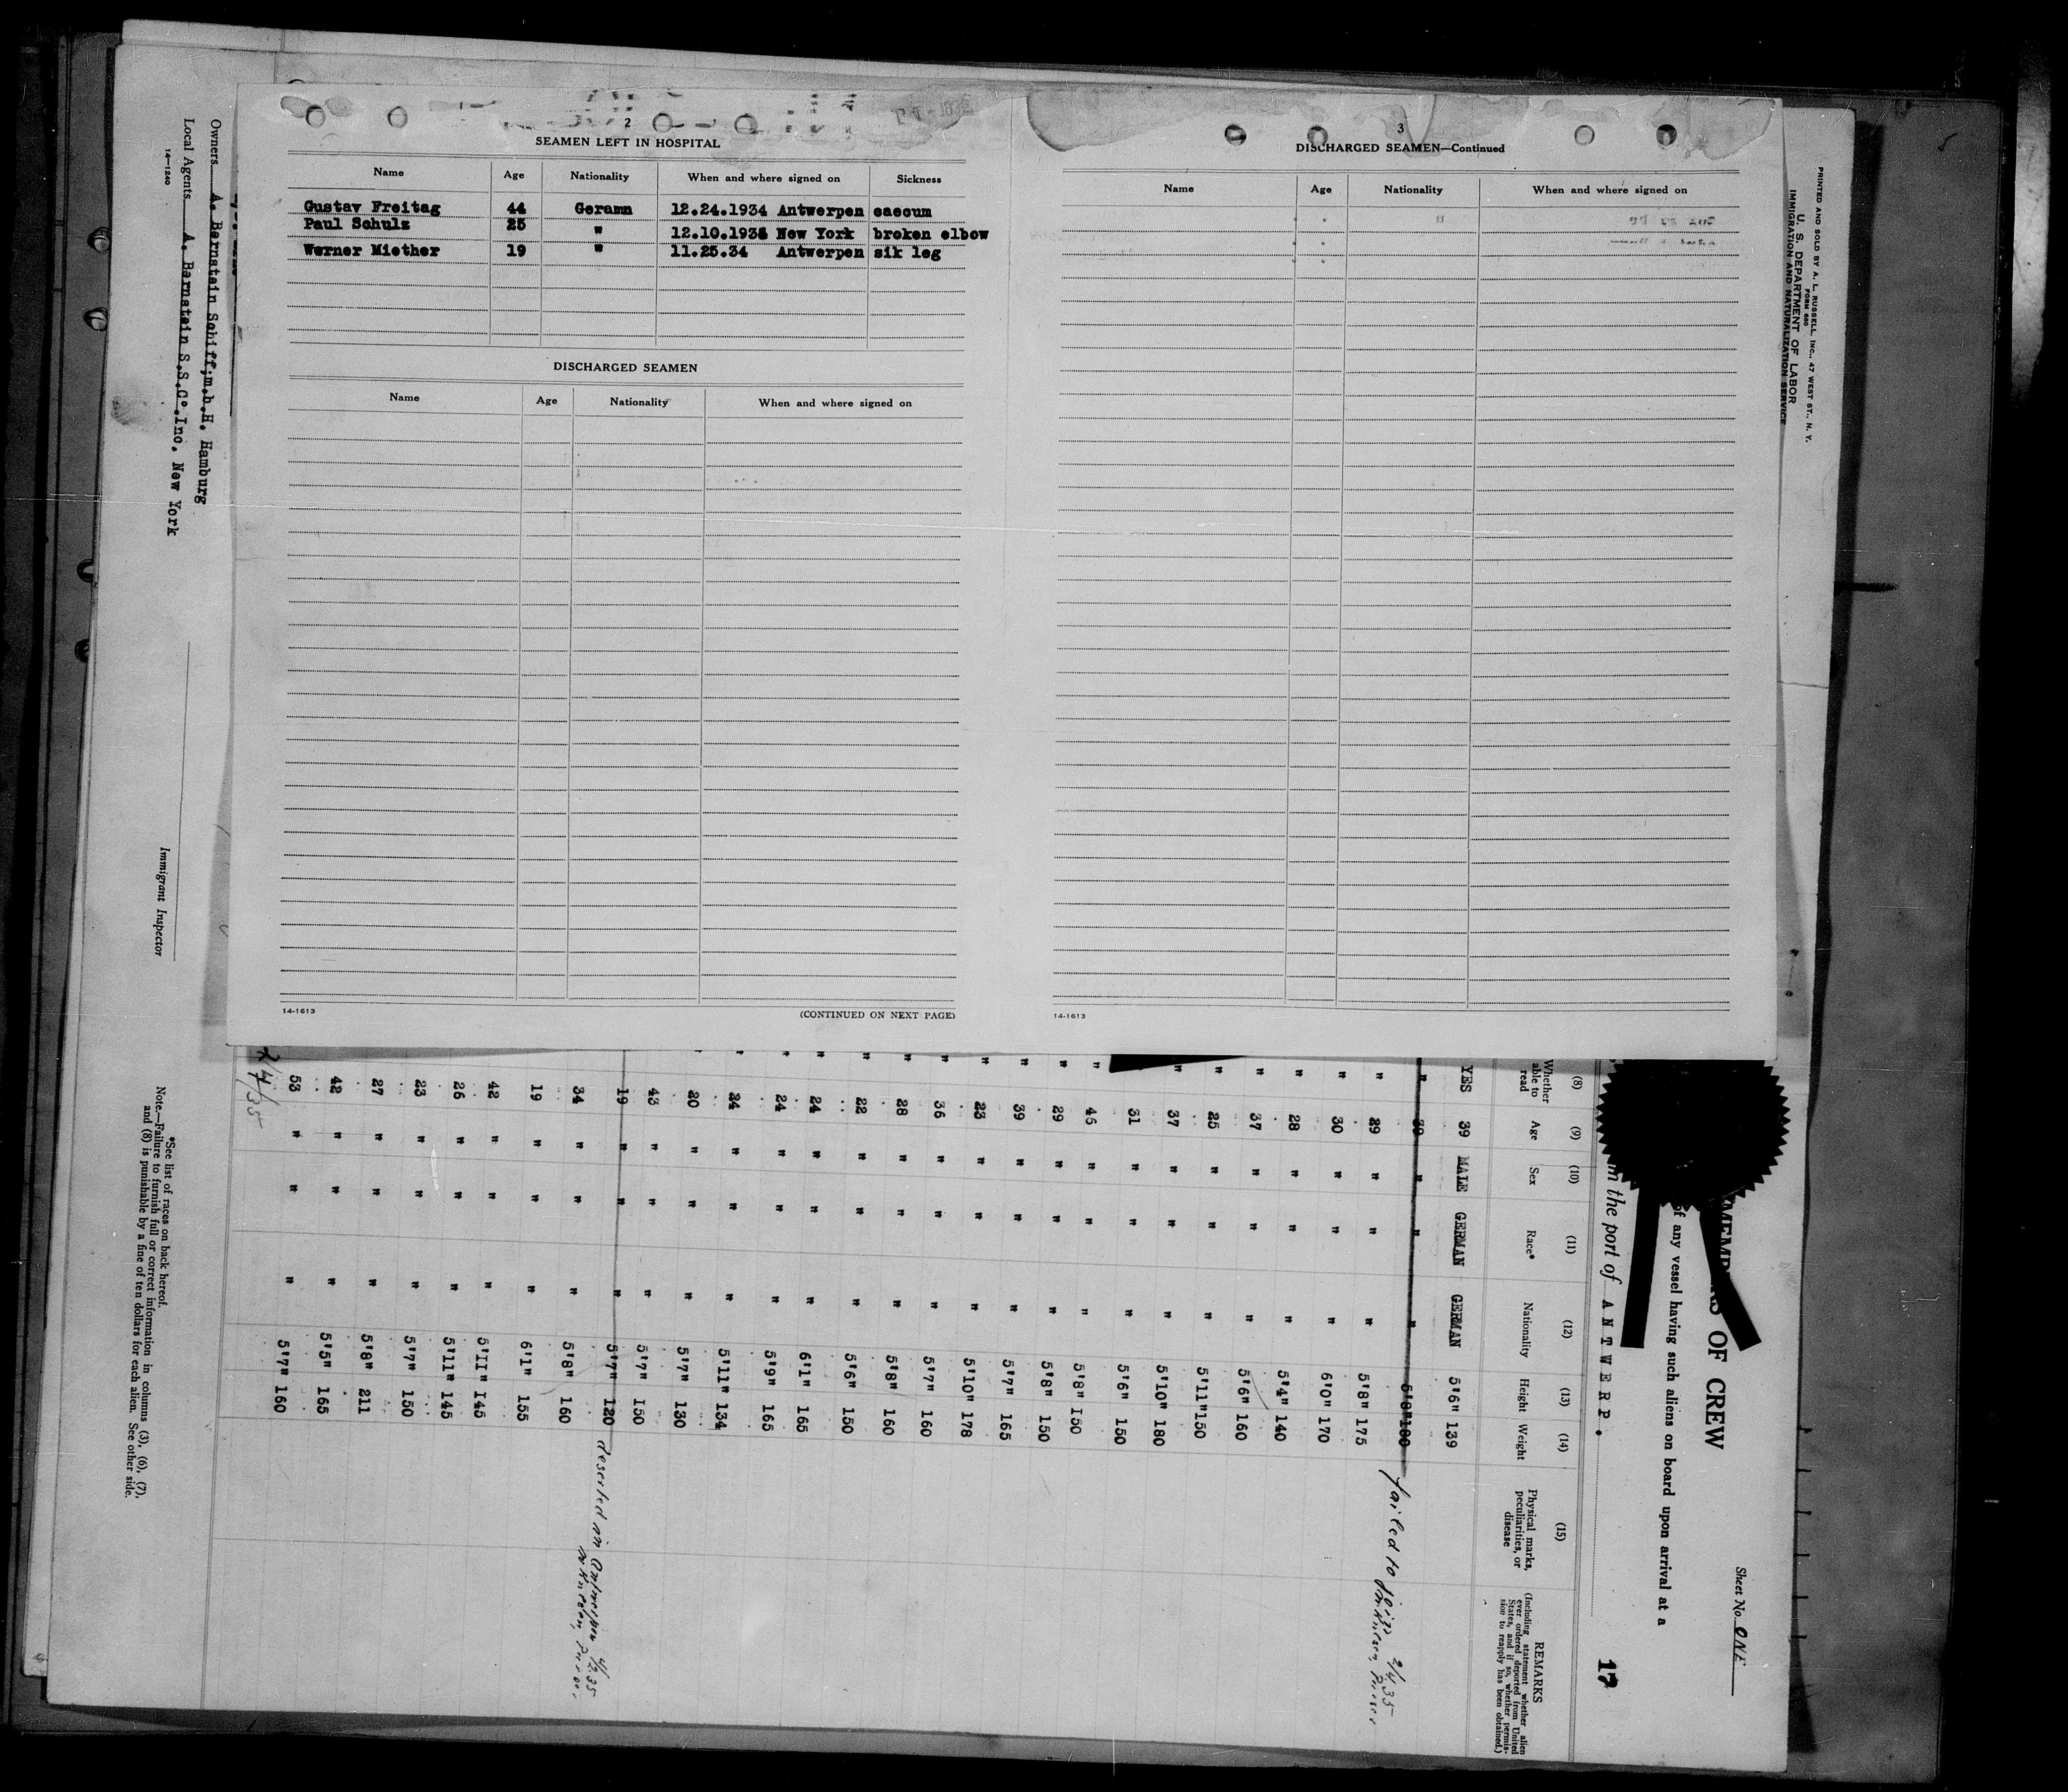 2
SEAMEN LEFT IN HOSPITAL
Name Age Nationality When and where signed on Sickness
Gustav Freitag 44 Geramn 12.24.1934 Antwerpen caecum
Paul Schulz 25 " 12.10.1934 New York broken elbow
Werner Miether 19 " 11.25.34 Antwerpen sik leg
DISCHARGED SEAMEN
Name Age Nationality When and where signed on
14-1613 (CONTINUED ON NEXT PAGE)
3
DISCHARGED SEAMEN—Continued
Name Age Nationality When and where signed on
14-1613
PRINTED AND SOLD BY A. L. RUSSELL, INC., 47 WEST ST., N. Y.
FORM 680
U. S. DEPARTMENT OF LABOR
IMMIGRATION AND NATURALIZATION SERVICE
Sheet No. ONE
OF CREW
of any vessel having such aliens on board upon arrival at a
m the port of ANTWERP. 17
(8) (9) (10) (11) (12) (13) (14) (15)
Whether able to read Age Sex Race* Nationality Height Weight Physical marks, peculiarities, or disease
REMARKS
(Including statement whether alien ever ordered deported from United States, and if so, whether permission to reapply has been obtained.)
YES 39 MALE GERMAN GERMAN 5'6" 139
" 39 " " " 5'8" 180 failed to join 2/4 35
" 29 " " " 5'8" 175
" 30 " " " 6'0" 170
" 28 " " " 5'4" 140
" 37 " " " 5'6" 160
" 25 " " " 5'11" 150
" 37 " " " 5'10" 180
31 " " " 5'6" 150
" 46 " " " 5'8" 150
" 29 " " " 5'8" 150
" 39 " " " 5'7" 165
" 23 " " " 5'10" 178
" 36 " " " 5'7" 160
" 28 " " " 5'8" 160
" 22 " " " 5'6" 150
" 24 " " " 6'1" 165
" 24 " " " 5'9" 165
" 24 " " " 5'11" 134
" 20 " " " 5'7" 130
43 " " " 5'7" 150
19 " " " 5'7" 120 deserted in Antwerpen
34 " " " 5'8" 160
19 " " " 6'1" 155
42 " " " 5'II" I45
26 " " " 5'11" 145
23 " " " 5'7" 150
27 " " " 5'8" 211
42 " " " 5'5" 165
53 " " " 5'7" 160
2/4/35
Owners A. Bernstein Schiff;m.b.H. Hamburg
Local Agents A. Bernstein S.S.Co.Inc. New York
14—1240
Immigrant Inspector
*See list of races on back hereof.
Note.—Failure to furnish full or correct information in columns (3), (6), (7),
and (8) is punishable by a fine of ten dollars for each alien. See other side.